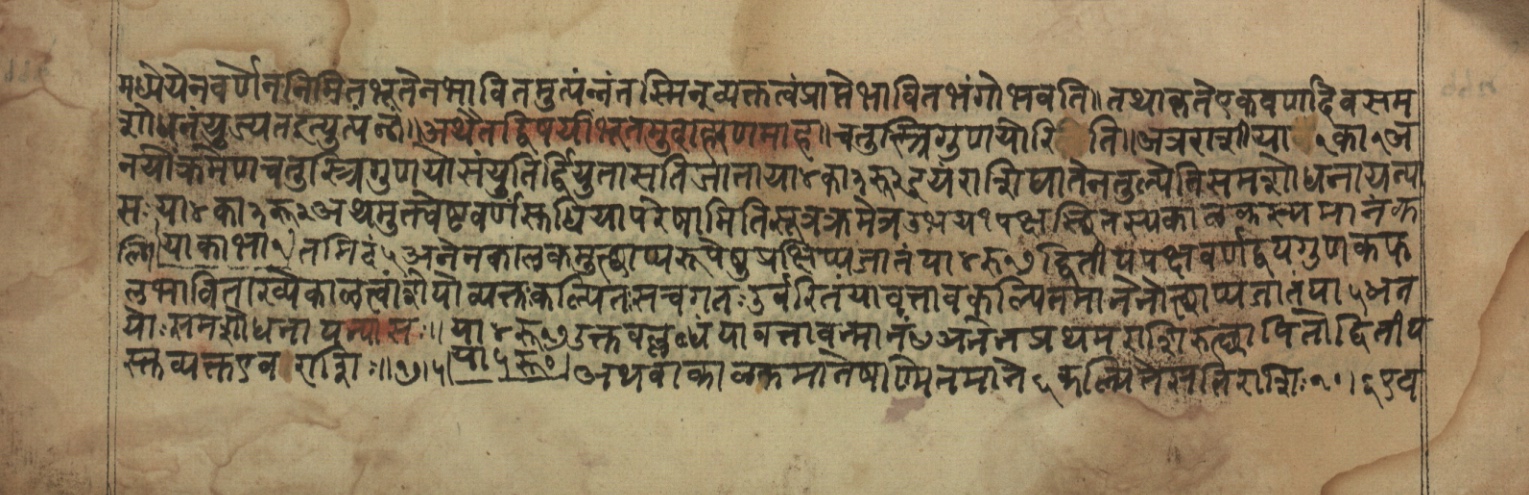 मध्येयेनवर्णेननिमित्तभूतेनभावितमुत्पंन्नंतस्मिन्व्यक्तत्वंप्राप्तेभावितभंगोभवति॥तथाकृतेएकवर्णादिवसम
शोधनंयुज्यतइत्युत्पन्नं॥अथैतद्विषयीभूतमुदाहरणमाह॥चतुस्त्रिगुणयोरि ति॥अत्रराशीया १का१अ
नयोःक्रमेणचतुस्त्रिगुणयोःसंयुतिर्द्वियुतासतिजाताया४का३रू२इयंराशिघातेनतुल्येतिसमशोधनायन्या
सः या४का३रू२अथमुक्त्वेष्टवर्णंसुधियापरेषामितिसूत्रक्रमेण
लि। याकाभा१ तमिदं५अनेनकालकमुत्थाप्यरूपेषुप्रक्षिप्यजातंया४रू१७द्वितीयपक्षेवर्णद्वयगुणकफ
लभाविताख्येकालत्वांशोपोव्यक्तःकल्पितःसचगतःउर्वरितंयावत्तावकल्पितमानेनोत्थाप्यजातंया५अन
योः समशोधनायन्यासः॥ या४रू१७उक्तवल्लब्धंयावत्तावन्मानं१७अनेनप्रथमराशिरुत्थापितोद्वितीय
स्तुव्यक्तएव राशिः॥१७।५ या५रू० अथवाकालकमानेषण्मितमाने६कल्पितेसतिराशिः१०।६एव